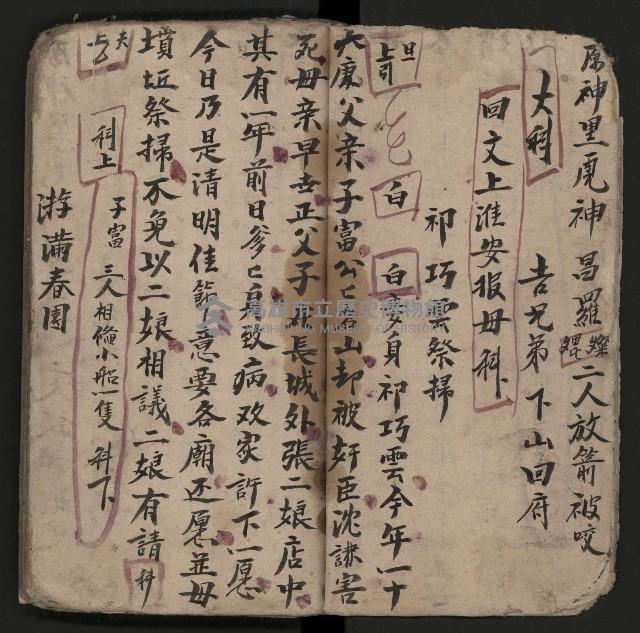 原神黑虎神昌羅燦鯤二人放箭被咬
大科 吉兄弟下山回府
回文上淮安报毋科下
祁巧雲祭掃
旦上司 白 白 身祁巧雲今年一十
六庚父亲子富公山却被奸臣沈謙害
死母亲早去正父子長城外張二娘店中
其有一年前日爹亡身致病效家許下一愿
今日乃是清明佳節意要各廟还愿並母
墳坵祭掃不免以二娘相議二娘有請科
夫上
科上 子富 三人相偹小船一隻科下
游滿春園
高雄市立歷史博物館
KAOHSIUNG MUSEUM OF HISTORY